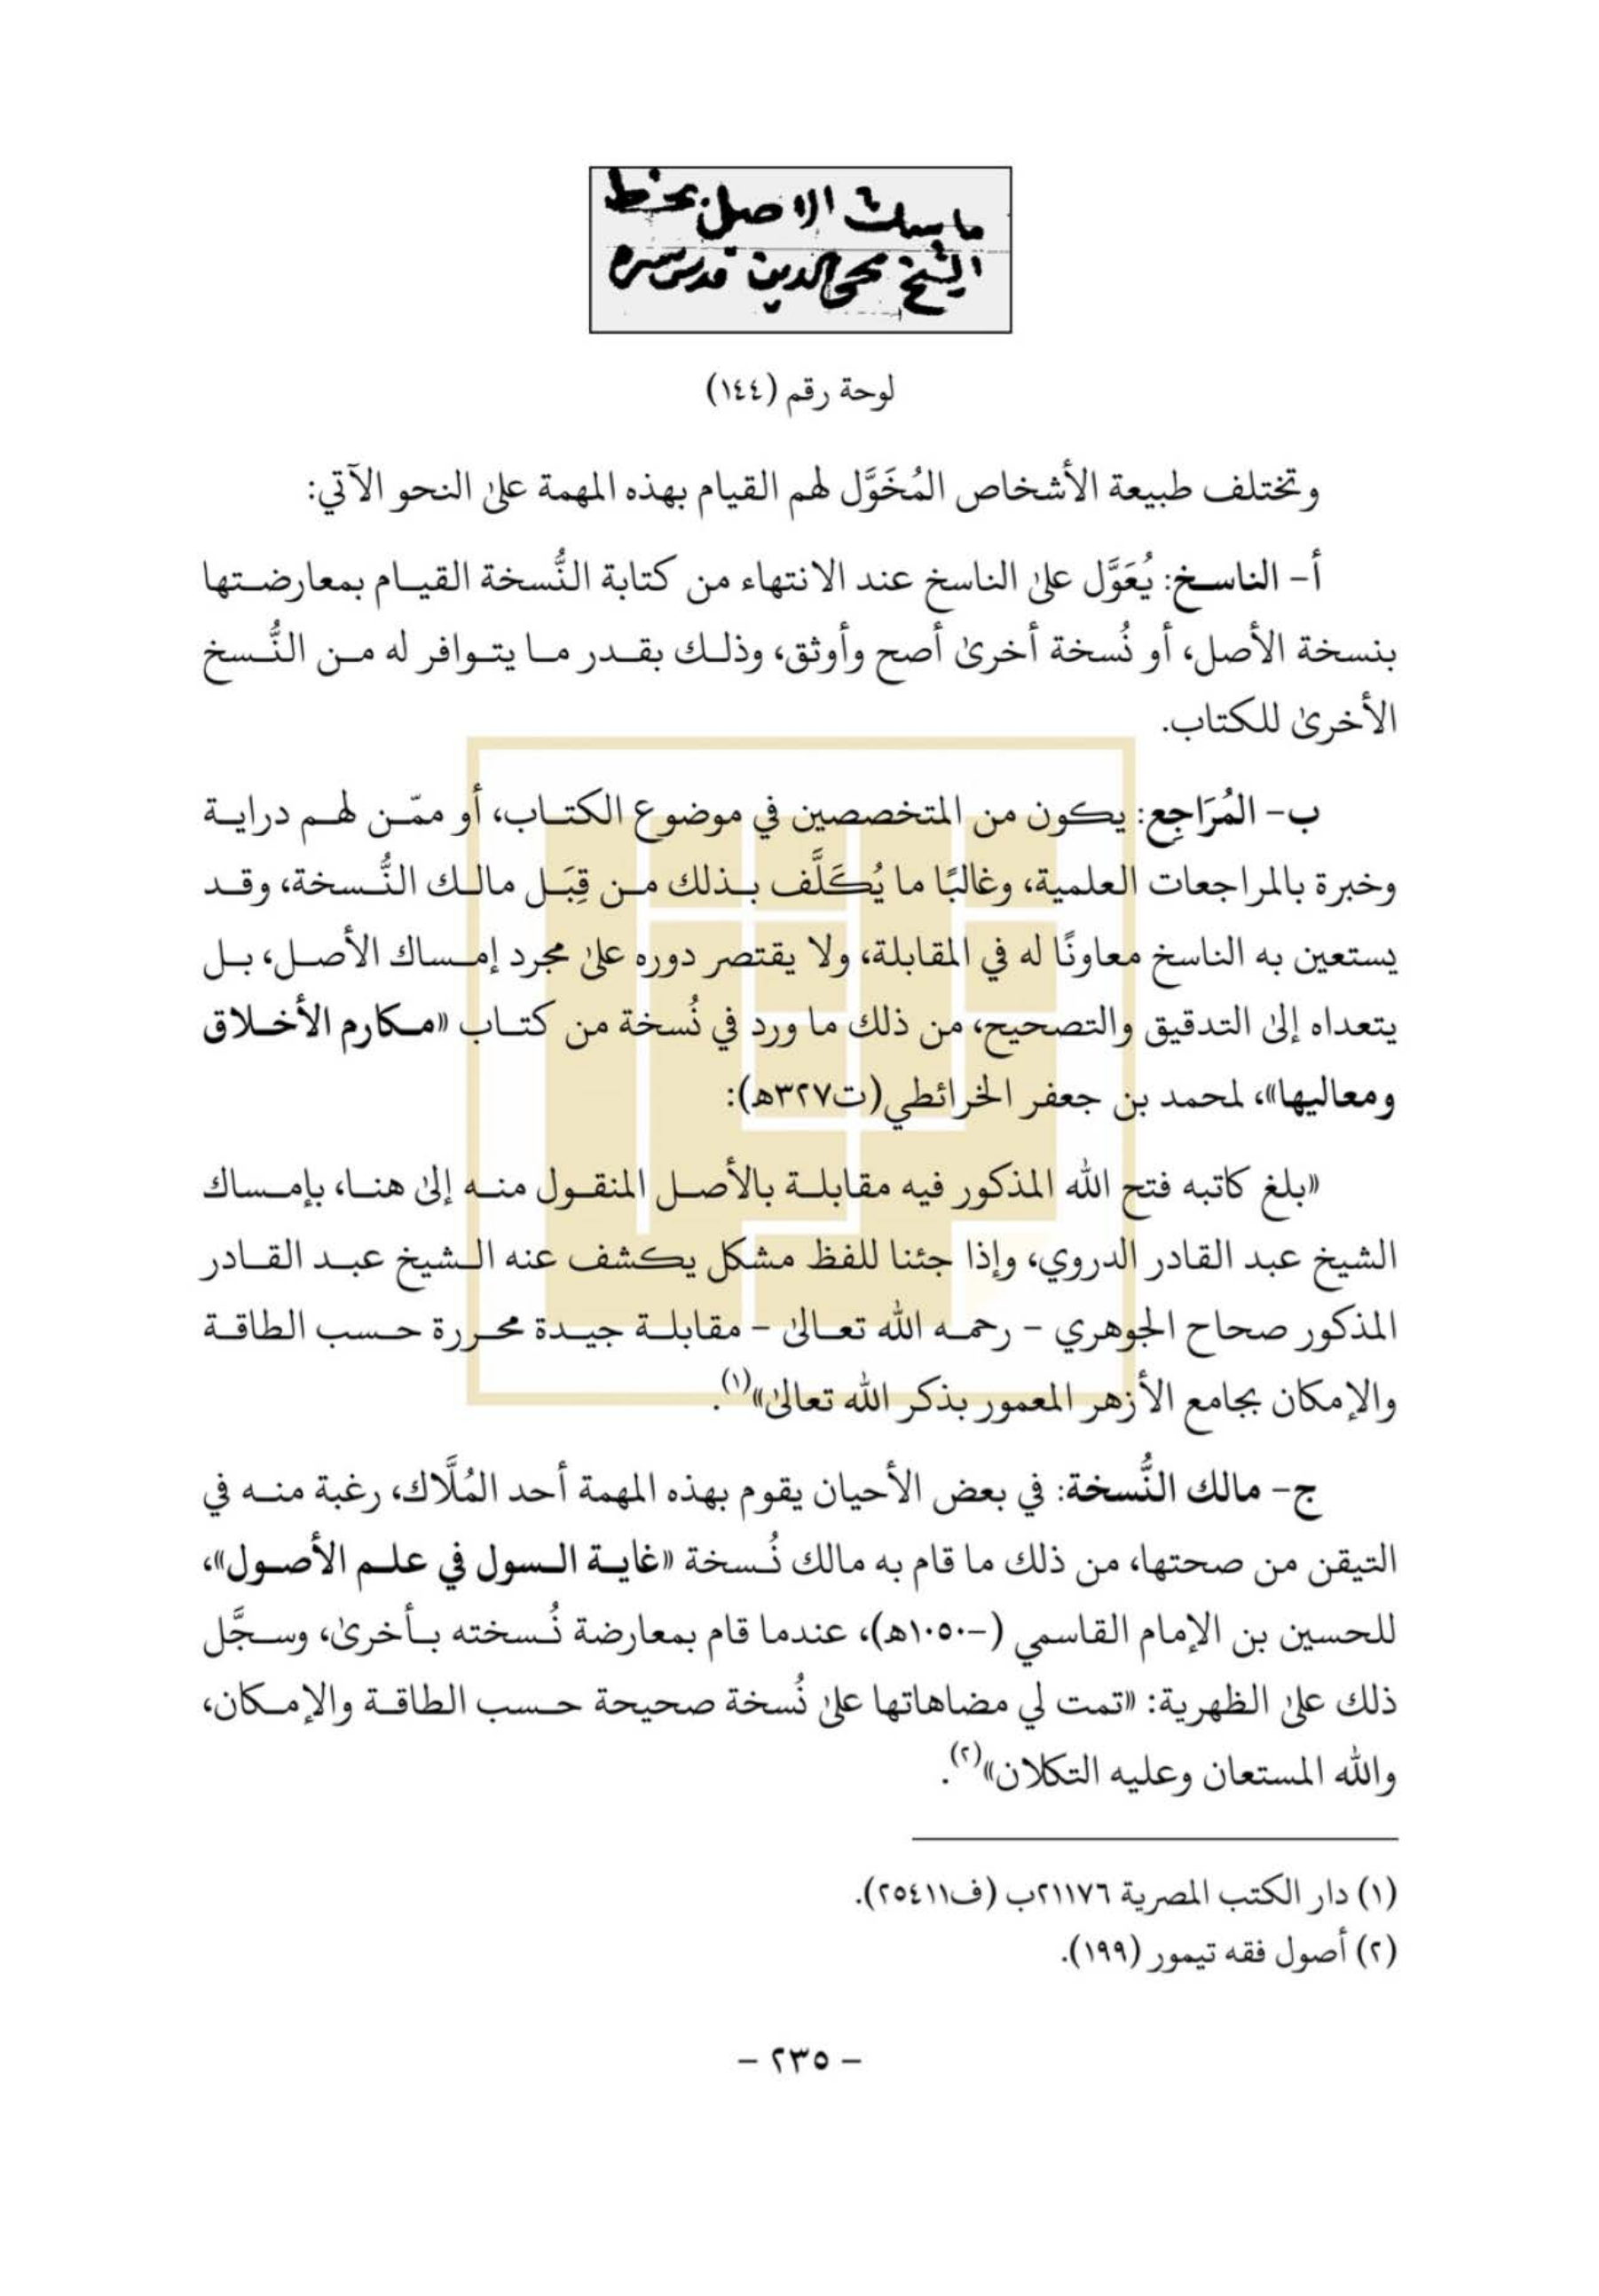 ماسك الاصل بخط
الشيخ محي الدين قدس سره
لوحة رقم (١٤٤)
وتختلف طبيعة الأشخاص المُخَوَّل لهم القيام بهذه المهمة على النحو الآتي:
أ- الناسخ: يُعَوَّل على الناسخ عند الانتهاء من كتابة النُّسخة القيام بمعارضتها
بنسخة الأصل، أو نُسخة أخرى أصح وأوثق، وذلك بقدر ما يتوافر له من النُّسخ
الأخرى للكتاب.
ب- المُرَاجِع: يكون من المتخصصين في موضوع الكتاب، أو ممّن لهم دراية
وخبرة بالمراجعات العلمية، وغالبًا ما يُكَلَّف بذلك من قِبَل مالك النُّسخة، وقد
يستعين به الناسخ معاونًا له في المقابلة، ولا يقتصر دوره على مجرد إمساك الأصل، بل
يتعداه إلى التدقيق والتصحيح، من ذلك ما ورد في نُسخة من كتاب «مكارم الأخلاق
ومعاليها»، لمحمد بن جعفر الخرائطي(ت٣٢٧ه):
«بلغ كاتبه فتح الله المذكور فيه مقابلة بالأصل المنقول منه إلى هنا، بإمساك
الشيخ عبد القادر الدروي، وإذا جئنا للفظ مشكل يكشف عنه الشيخ عبد القادر
المذكور صحاح الجوهري - رحمه الله تعالى - مقابلة جيدة محررة حسب الطاقة
والإمكان بجامع الأزهر المعمور بذكر الله تعالى»(١).
ج- مالك النُّسخة: في بعض الأحيان يقوم بهذه المهمة أحد المُلَّاك، رغبة منه في
التيقن من صحتها، من ذلك ما قام به مالك نُسخة «غاية السول في علم الأصول»،
للحسين بن الإمام القاسمي (-١٠٥٠ه)، عندما قام بمعارضة نُسخته بأخرى، وسجَّل
ذلك على الظهرية: «تمت لي مضاهاتها على نُسخة صحيحة حسب الطاقة والإمكان،
والله المستعان وعليه التكلان»(٢).
(١) دار الكتب المصرية ٢١١٧٦ب (ف٢٥٤١١).
(٢) أصول فقه تيمور (١٩٩).
- ٢٣٥ -